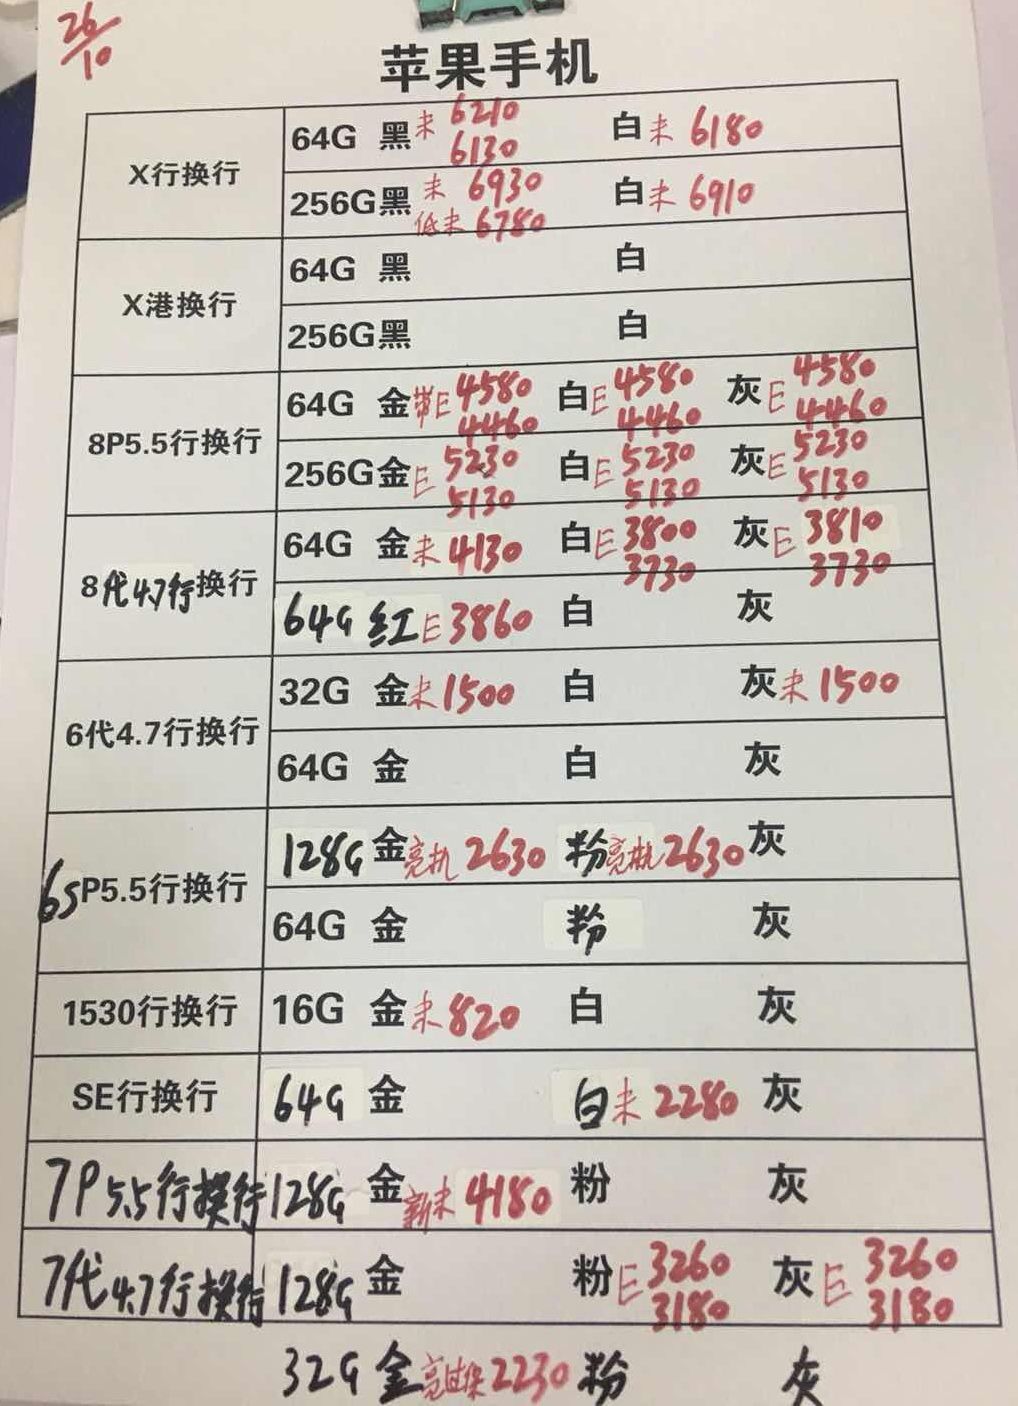 26/10
苹果手机
X行换行
64G 黑 未 6210 6130 白 未 6180
256G 黑 未 6930 低未 6780 白 未 6910
X港换行
64G 黑 白
256G 黑 白
8P5.5行换行
64G 金 带E 4580 4460 白 E 4580 4460 灰 E 4580 4460
256G 金 E 5230 5130 白 E 5230 5130 灰 E 5230 5130
8代4.7行换行
64G 金 未 4130 白 E 3800 3730 灰 E 3810 3730
64G 红 E 3860 白 灰
6代4.7行换行
32G 金 未 1500 白 灰 未 1500
64G 金 白 灰
6SP5.5行换行
128G 金 亮机 2630 粉 亮机 2630 灰
64G 金 粉 灰
1530行换行
16G 金 未 820 白 灰
SE行换行
64G 金 白 未 2280 灰
7P5.5行换行
128G 金 新未 4180 粉 灰
7代4.7行换行
128G 金 粉 E 3260 3180 灰 E 3260 3180
32G 金 亮过保 2230 粉 灰